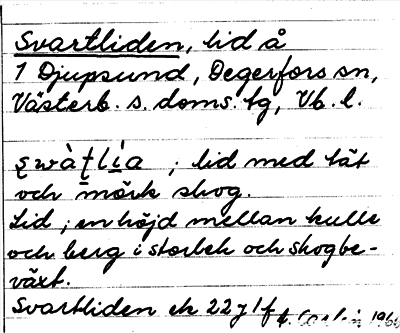 Svartliden, lid å
1 Djupsund, Degerfors sn,
Västerb. s. doms. tg, Vb. l.
ʂwàt̨lía ; lid med tät
och mörk skog.
Lid ; en höjd mellan kulle
och berg i storlek och skogbe-
växt.
Svartliden ek 22 7 1 f